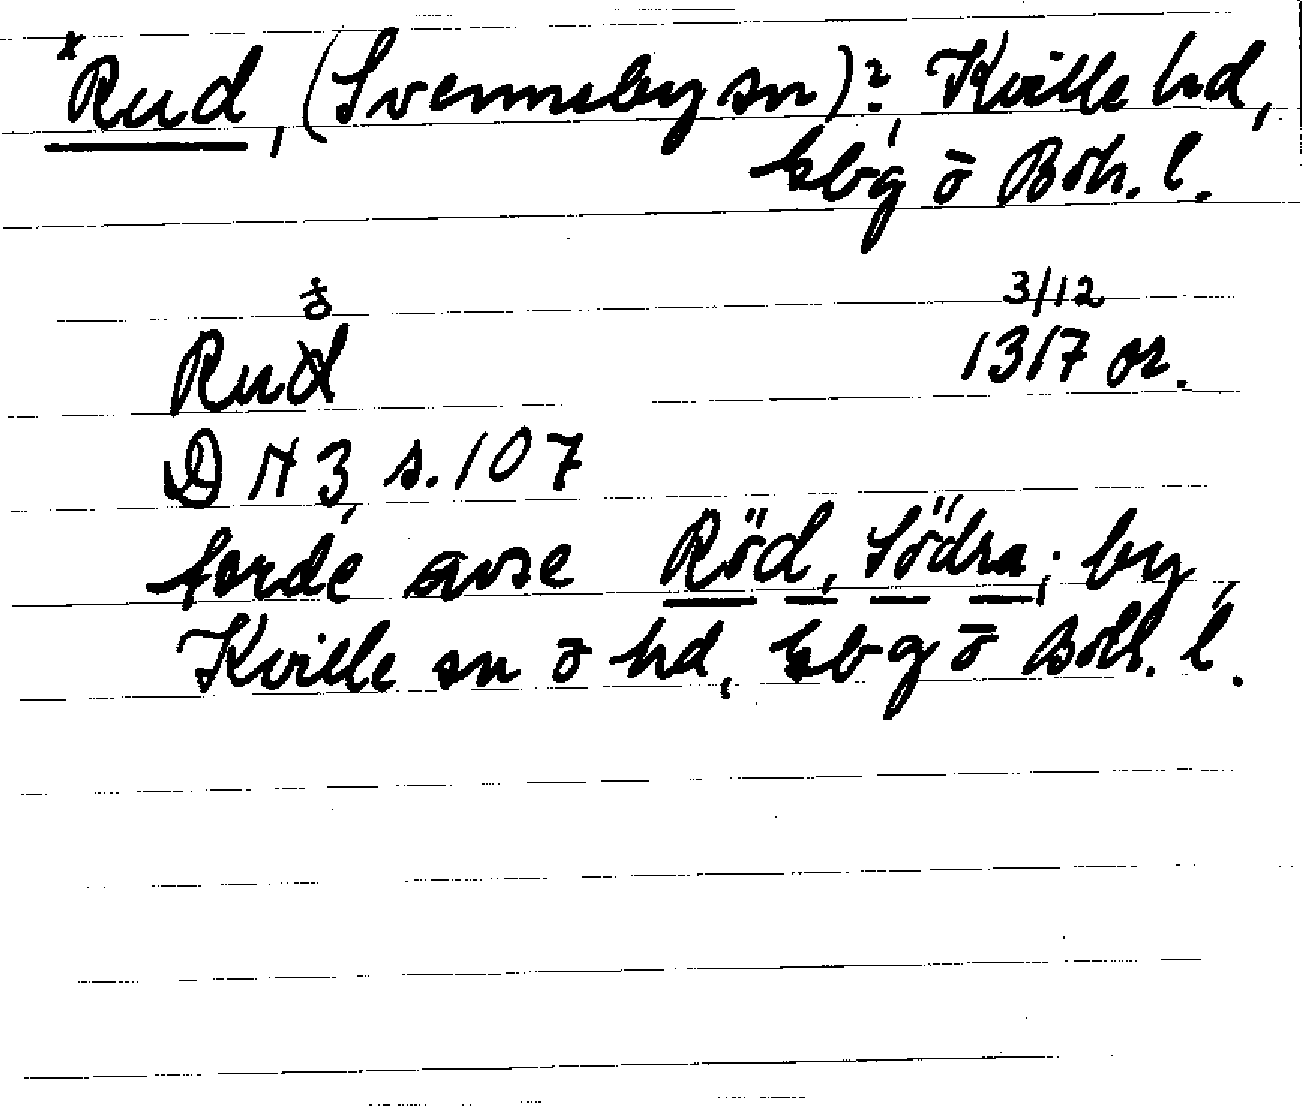 *Rud, (Svenneby sn)? Kville hd,
Gbg o Boh. l.
3/12
Rud 1317 or.
DN 3 s. 107
torde avse Röd, Södra, by,
Kville sn o hd, Gbg o Boh. l.